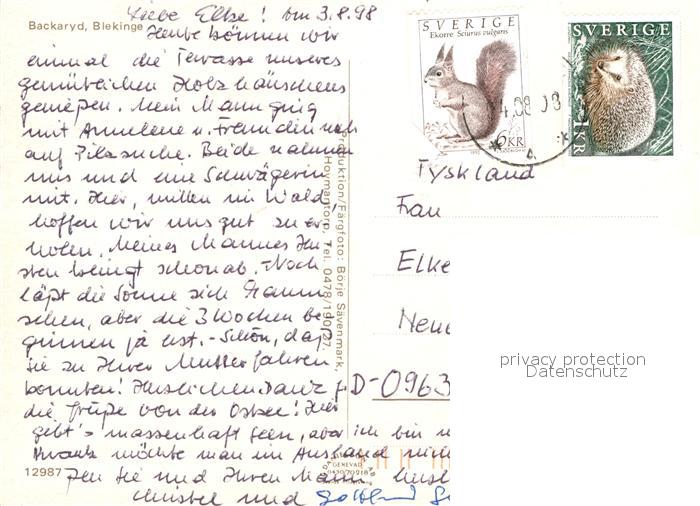 Backaryd, Blekinge
Liebe Elke! Am 3.8.98
Heute können wir
einmal die Terrasse unseres
gemütlichen Holzhäuschens
genießen. Mein Mann ging
mit Annelene u. Freundin noch
auf Pilzsuche. Beide nahmen
uns und eine Schwägerin
mit. Hier, mitten im Wald,
hoffen wir uns gut zu er-
holen. Meines Mannes Hu-
sten klingt schon ab. Noch
läßt die Sonne sich kaum
sehen, aber die 3 Wochen be-
ginnen ja erst. - Schön, daß
sie zu Ihrer Mutter fahren
konnten! Herzlichen Dank f.
die Grüße von der Ostsee! Hier
gibt's massenhaft Seen, aber ich bin
Krank möchte man im Ausland
Sie und Ihren Mann
Christel und Gotthard
12987
Produktion/Färgfoto: Börje Sävenmark,
Hovmantorp, Tel. 0478/190 27.
SVERIGE
Ekorre Sciurus vulgaris
6KR
SVERIGE
KR
Tyskland
Frau
Elke
Neue
D-0963
privacy protection
Datenschutz